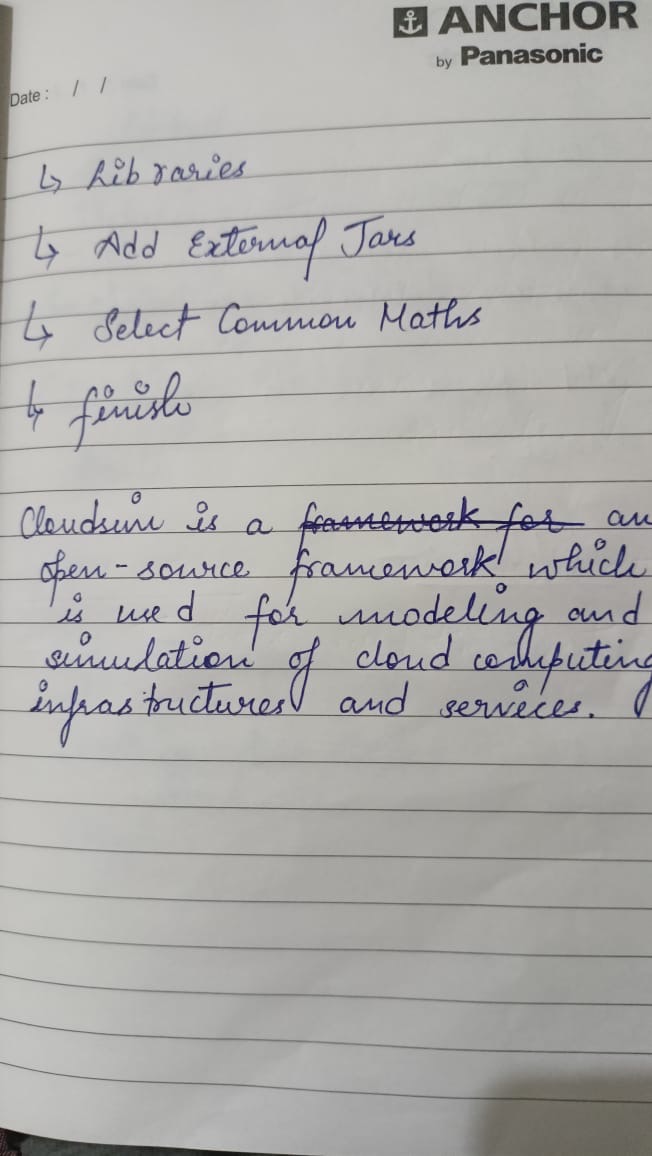 ANCHOR
by Panasonic
Date : / /
↳ Libraries
↳ Add External Jars
↳ Select Common Maths
↳ finish
Cloudsim is a framework for an
open-source framework which
is used for modeling and
simulation of cloud computing
infrastructures and services.